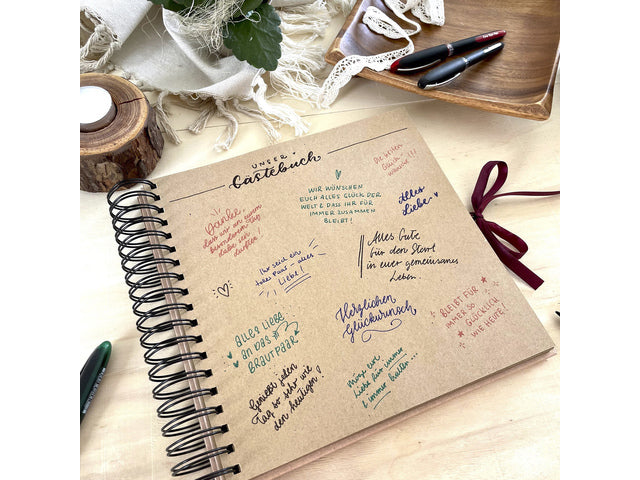 UNSER
Gästebuch
DIE BESTEN
Glück-
wünsche!!!
Danke,
dass wir an eurem
besonderen Tag
dabei sein
durften!
WIR WÜNSCHEN
EUCH ALLES GLÜCK DER
WELT & DASS IHR FÜR
IMMER ZUSAMMEN
BLEIBT!
Alles
Liebe
Ihr seid ein
tolles Paar - alles
Liebe!
Alles Gute
für den Start
in euer gemeinsames
Leben
ALLES LIEBE
AN DAS
BRAUTPAAR
Herzlichen
Glückwunsch
BLEIBT FÜR
IMMER SO
GLÜCKLICH
WIE HEUTE!
Genießt jeden
Tag so sehr wie
den heutigen!
Möge eure
Liebe für immer
& immer halten...